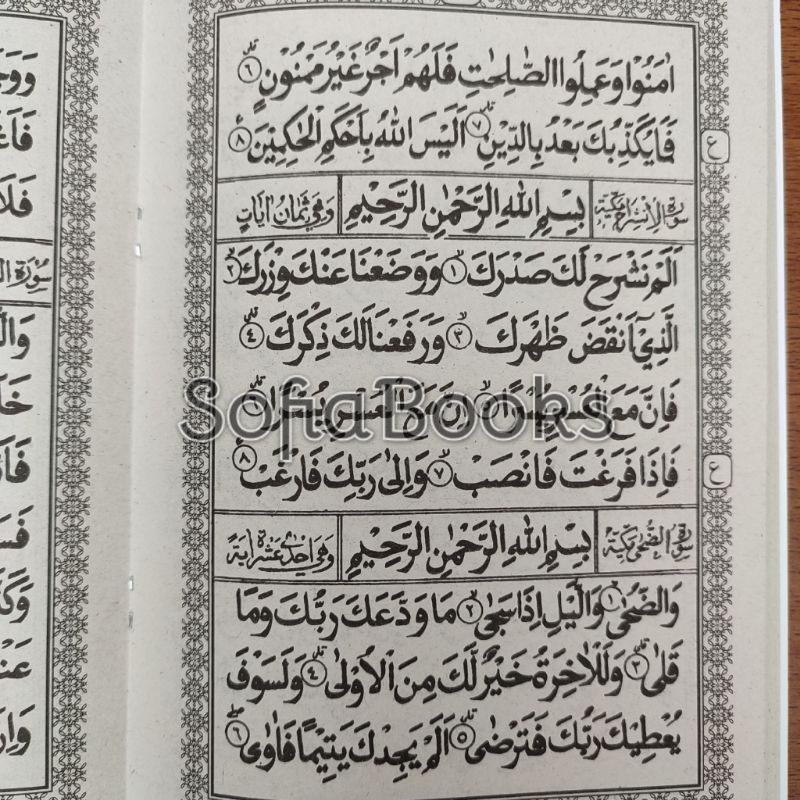 اٰمَنُوْا وَعَمِلُوا الصّٰلِحٰتِ فَلَهُمْ اَجْرٌ غَيْرُ مَمْنُوْنٍ ۙ ٦
فَمَا يُكَذِّبُكَ بَعْدُ بِالدِّيْنِ ۗ ٧ اَلَيْسَ اللّٰهُ بِاَحْكَمِ الْحٰكِمِيْنَ ٨
ع
سورة الانشراح مكية بِسْمِ اللّٰهِ الرَّحْمٰنِ الرَّحِيْمِ وهي ثمان ايات
اَلَمْ نَشْرَحْ لَكَ صَدْرَكَ ۙ ١ وَوَضَعْنَا عَنْكَ وِزْرَكَ ۙ ٢
الَّذِيْٓ اَنْقَضَ ظَهْرَكَ ۙ ٣ وَرَفَعْنَا لَكَ ذِكْرَكَ ۗ ٤
فَاِنَّ مَعَ الْعُسْرِ يُسْرًا ۙ ٥ اِنَّ مَعَ الْعُسْرِ يُسْرًا ۗ ٦
SofiaBooks
فَاِذَا فَرَغْتَ فَانْصَبْ ۙ ٧ وَاِلٰى رَبِّكَ فَارْغَبْ ٨
ع
سورة الضحى مكية بِسْمِ اللّٰهِ الرَّحْمٰنِ الرَّحِيْمِ وهي احدى عشرة اية
وَالضُّحٰى ۙ ١ وَالَّيْلِ اِذَا سَجٰى ۙ ٢ مَا وَدَّعَكَ رَبُّكَ وَمَا
قَلٰى ۗ ٣ وَلَلْاٰخِرَةُ خَيْرٌ لَّكَ مِنَ الْاُوْلٰى ۗ ٤ وَلَسَوْفَ
يُعْطِيْكَ رَبُّكَ فَتَرْضٰى ۗ ٥ اَلَمْ يَجِدْكَ يَتِيْمًا فَاٰوٰى ۖ ٦